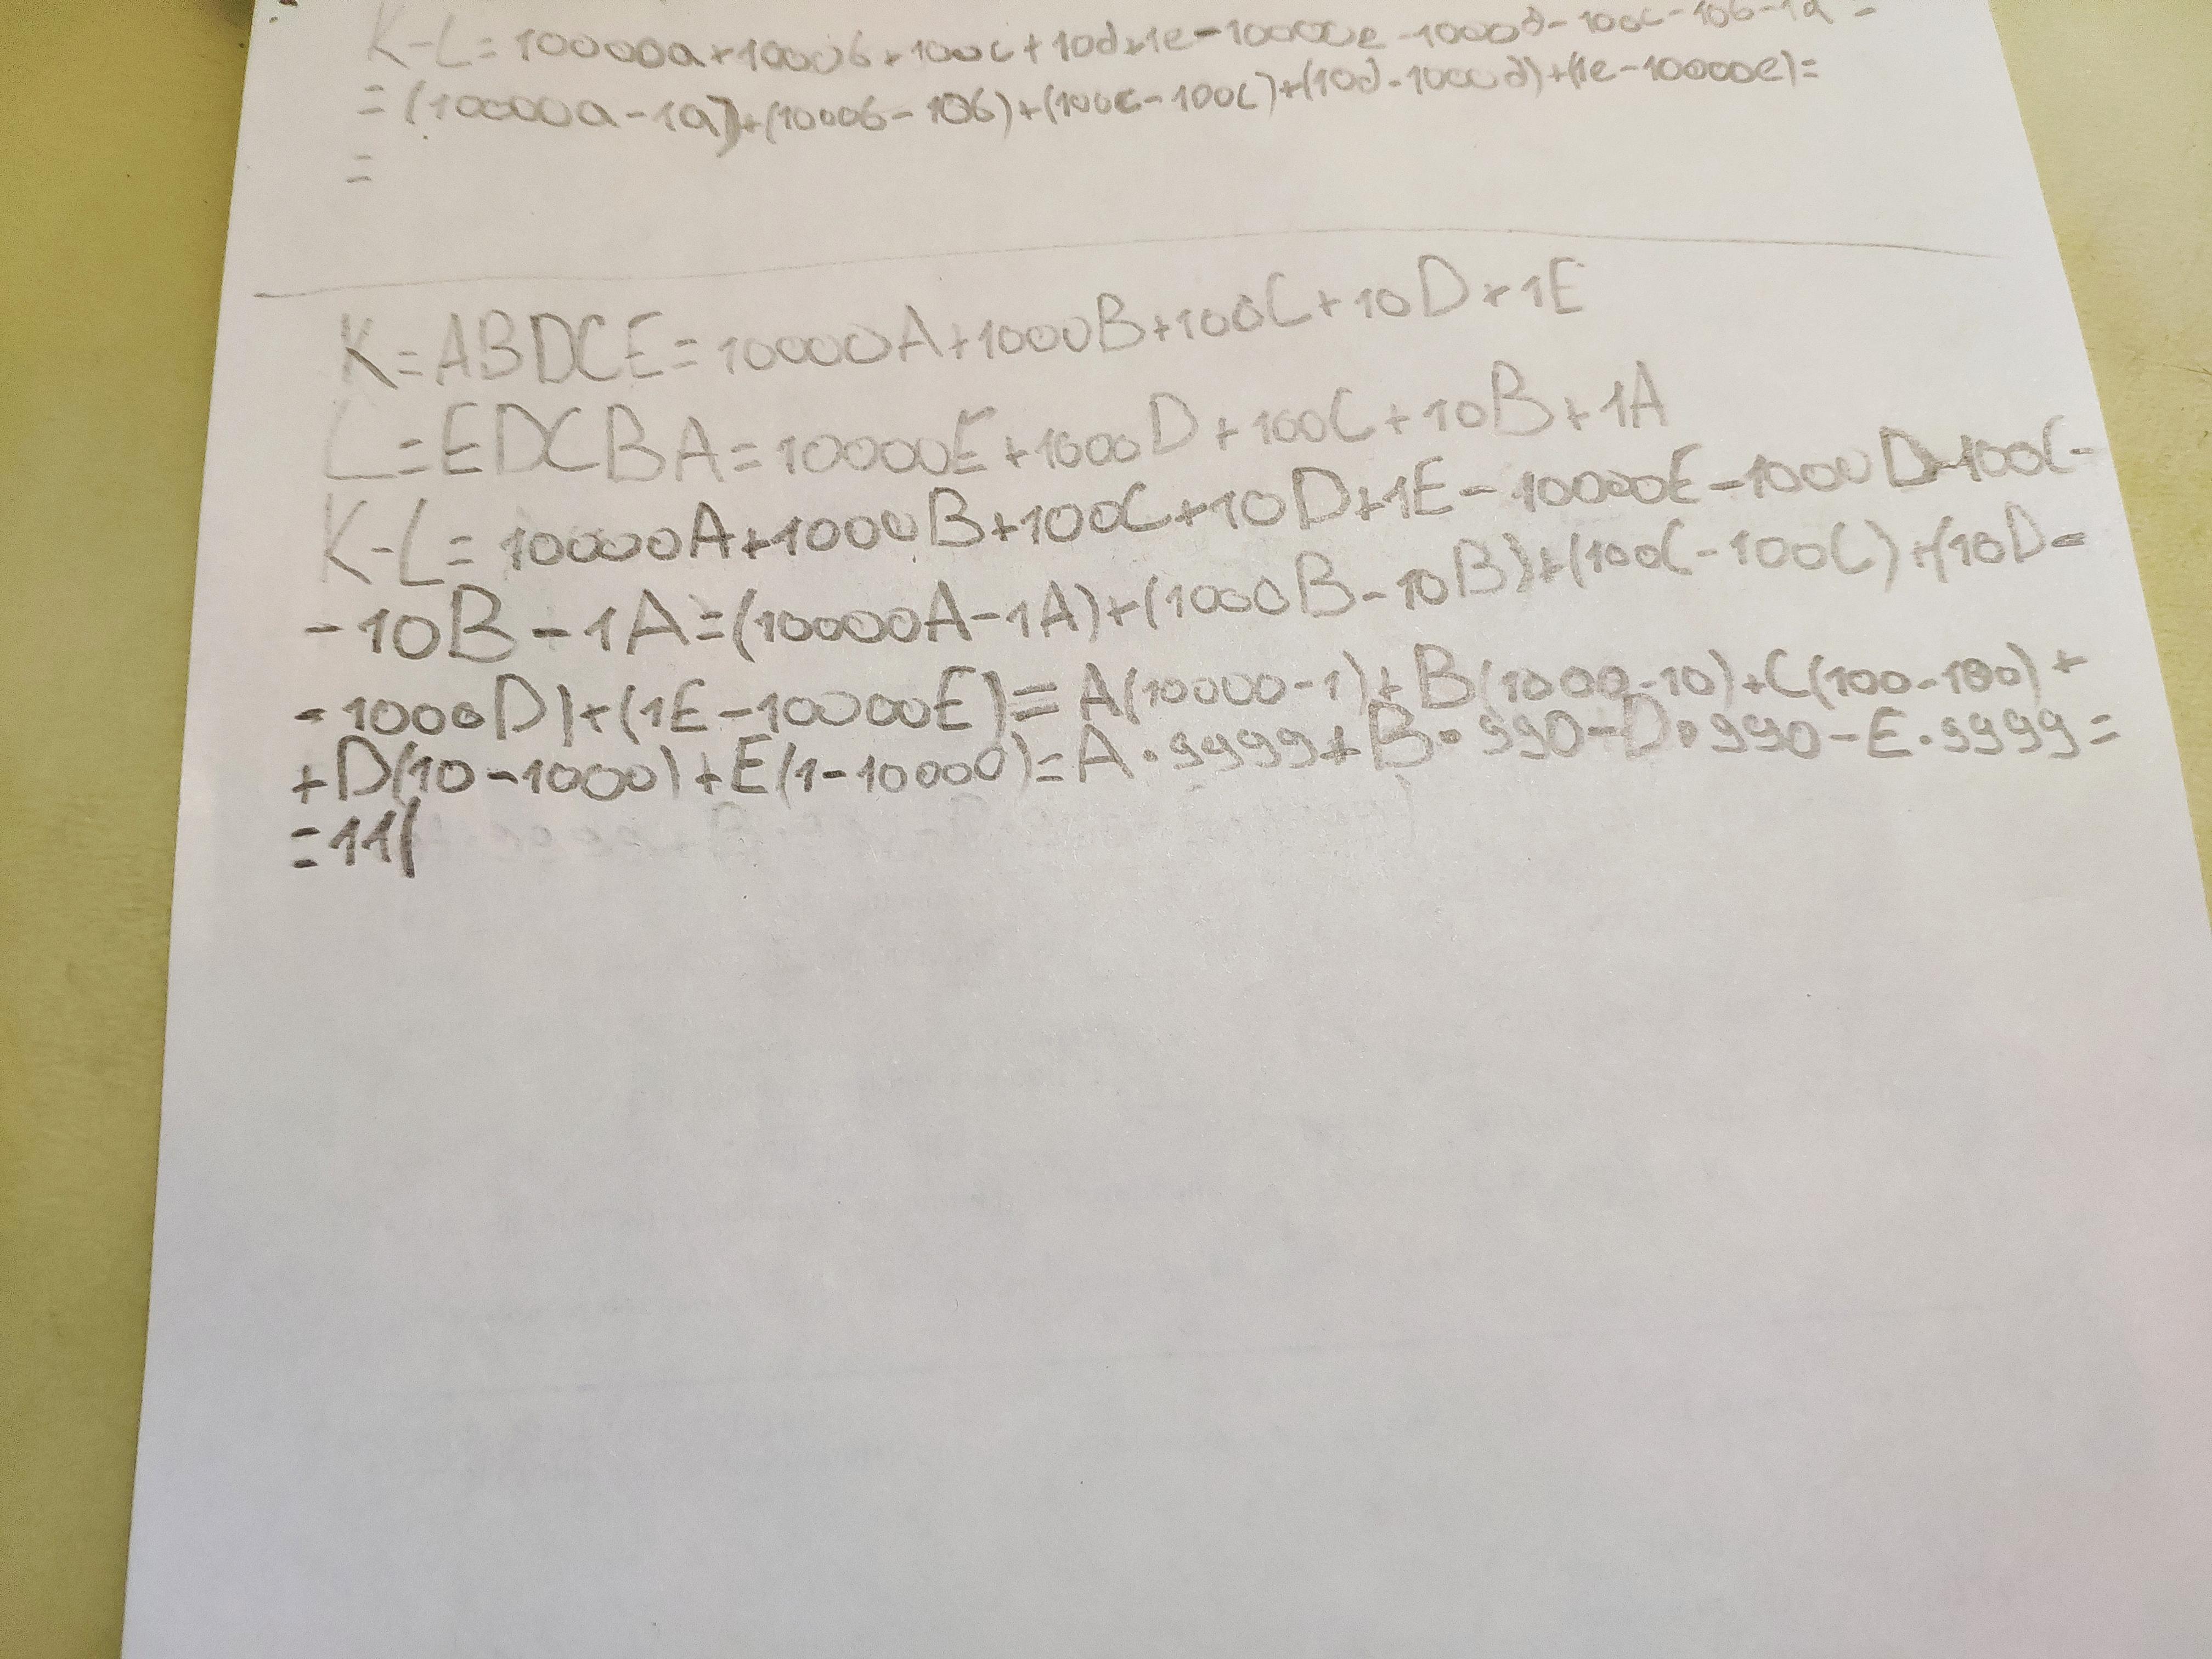 K-L= 10000a+1000b+100c+10d+1e-10000e-1000d-100c-10b-1a=
=(10000a-1a)+(1000b-10b)+(100c-100c)+(10d-1000d)+(1e-10000e)=
=
K=ABDCE=10000A+1000B+100C+10D+1E
L=EDCBA=10000E+1000D+100C+10B+1A
K-L= 10000A+1000B+100C+10D+1E-10000E-1000D-100C-
-10B-1A=(10000A-1A)+(1000B-10B)+(100C-100C)+(10D-
-1000D)+(1E-10000E)=A(10000-1)+B(1000-10)+C(100-100)+
+D(10-1000)+E(1-10000)=A·9999+B·990-D·990-E·9999=
=11(